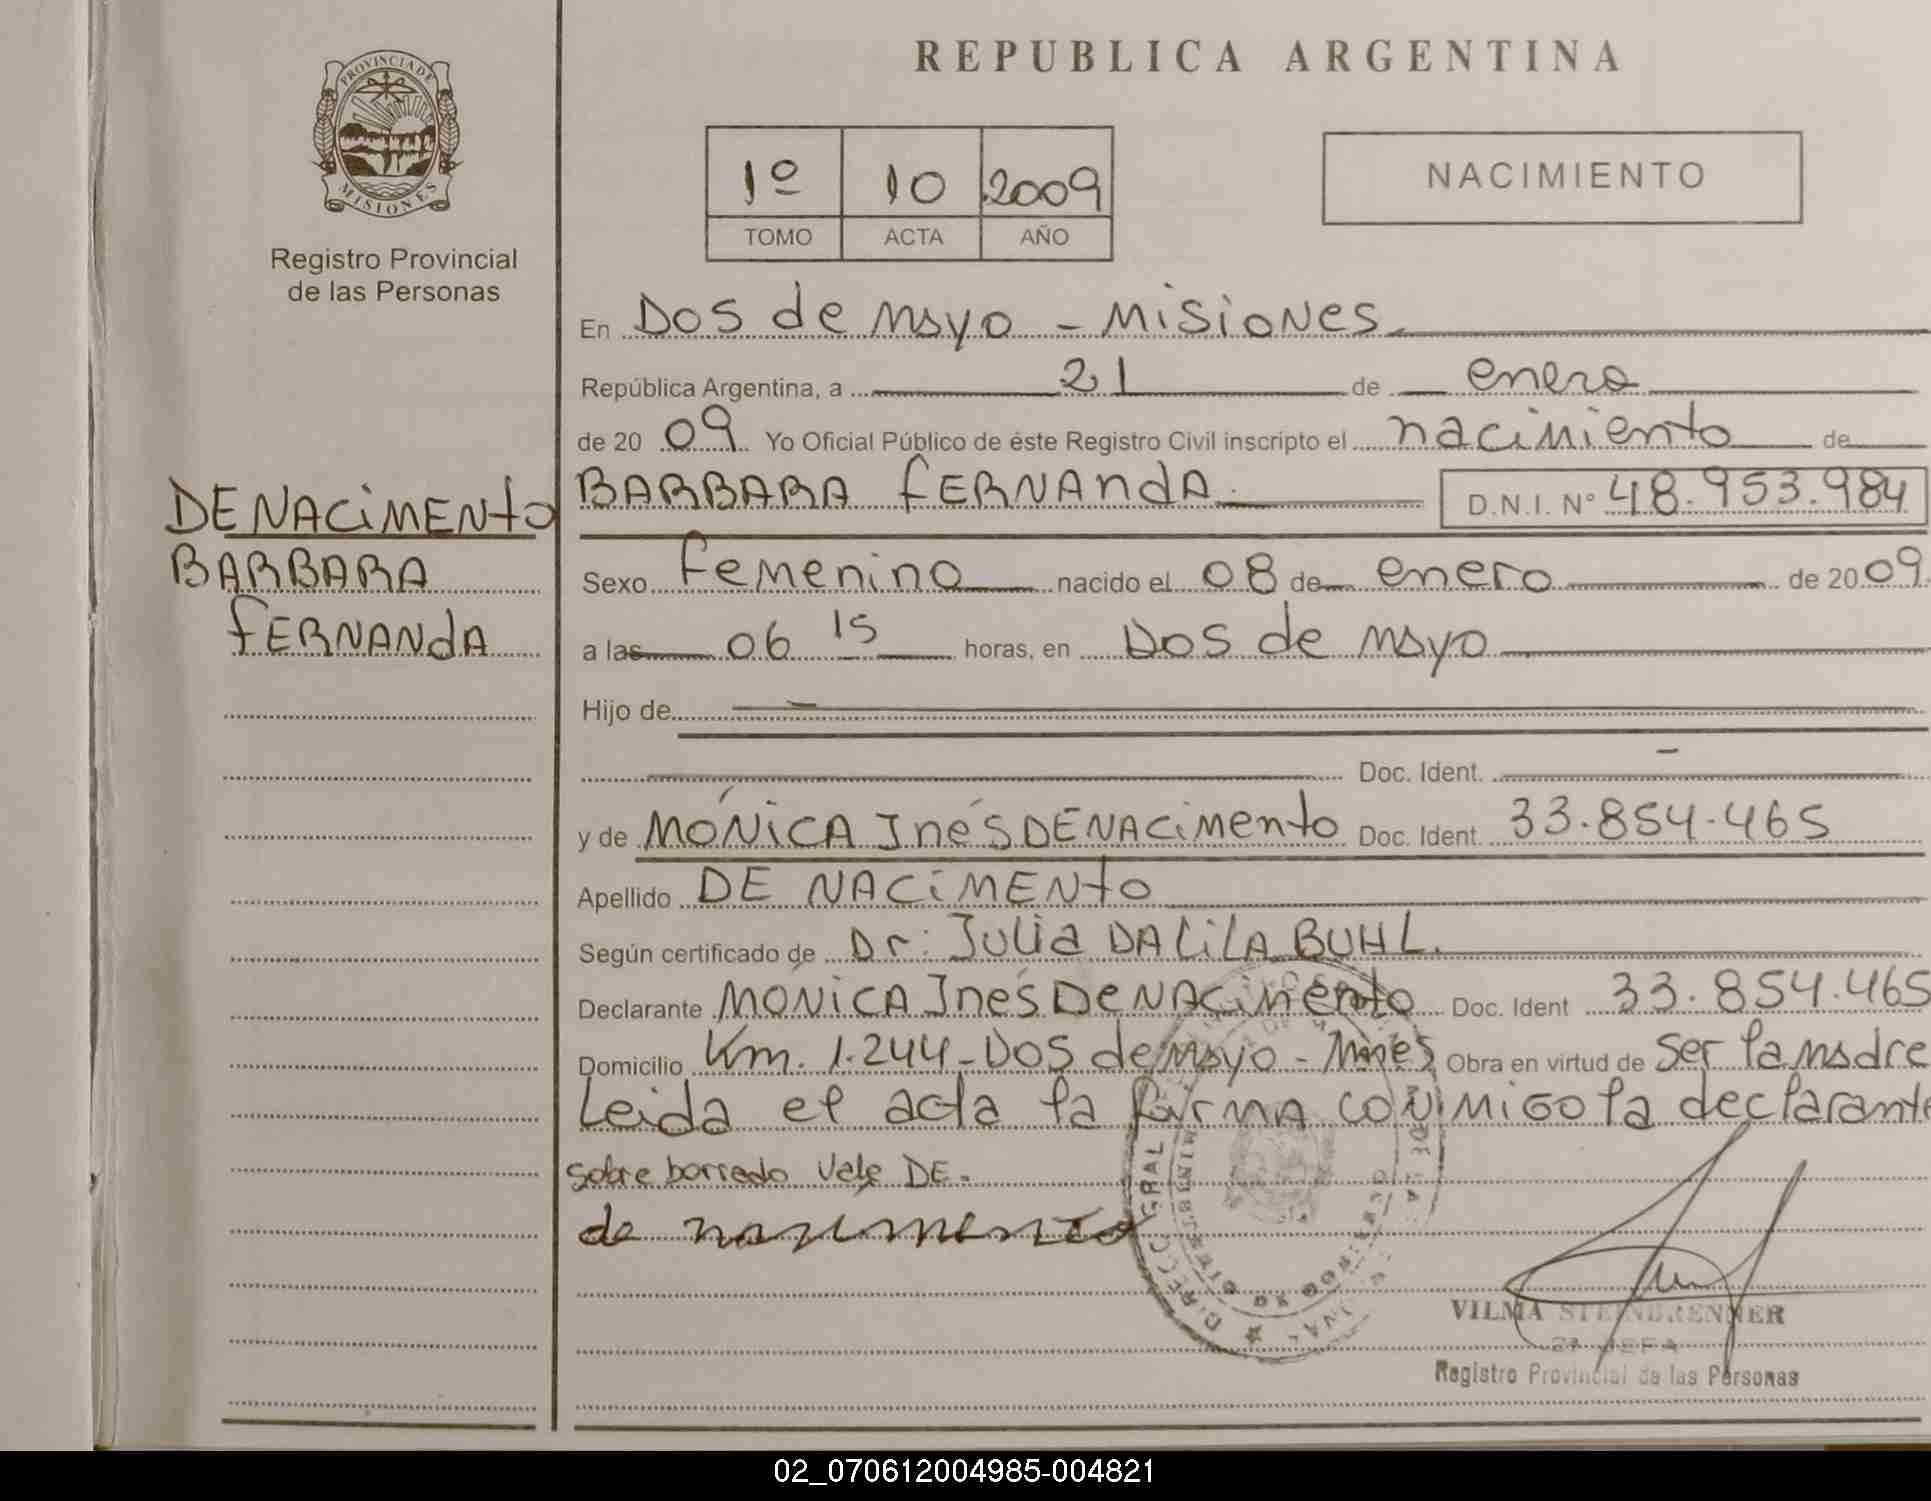 PROVINCIA DE
MISIONES
Registro Provincial
de las Personas
REPUBLICA ARGENTINA
1º 10 2009
TOMO ACTA AÑO
NACIMIENTO
En Dos de mayo - Misiones
República Argentina, a 21 de enero
de 20 09 Yo Oficial Público de éste Registro Civil inscripto el nacimiento de
DENACIMENTO
BARBARA
FERNANDA
BARBARA FERNANDA. D.N.I. Nº 48.953.984
Sexo Femenino nacido el 08 de enero de 20 09
a las 06 15 horas, en Dos de mayo
Hijo de -
Doc. Ident. -
y de MÓNICA Inés DENACimento Doc. Ident. 33.854.465
Apellido DE NACIMENTO
Según certificado de Dr: Julia DALILA BUHL.
Declarante MÓNICA Inés DeNACimento Doc. Ident 33.854.465
Domicilio Km. 1.244-Dos de mayo - Mnes Obra en virtud de ser la madre
Leida el acta la firma conmigo la declarante
sobre borrado vale DE.
de nacimento
VILMA STEINBRENNER
JEFA
Registro Provincial de las Personas
02_070612004985-004821